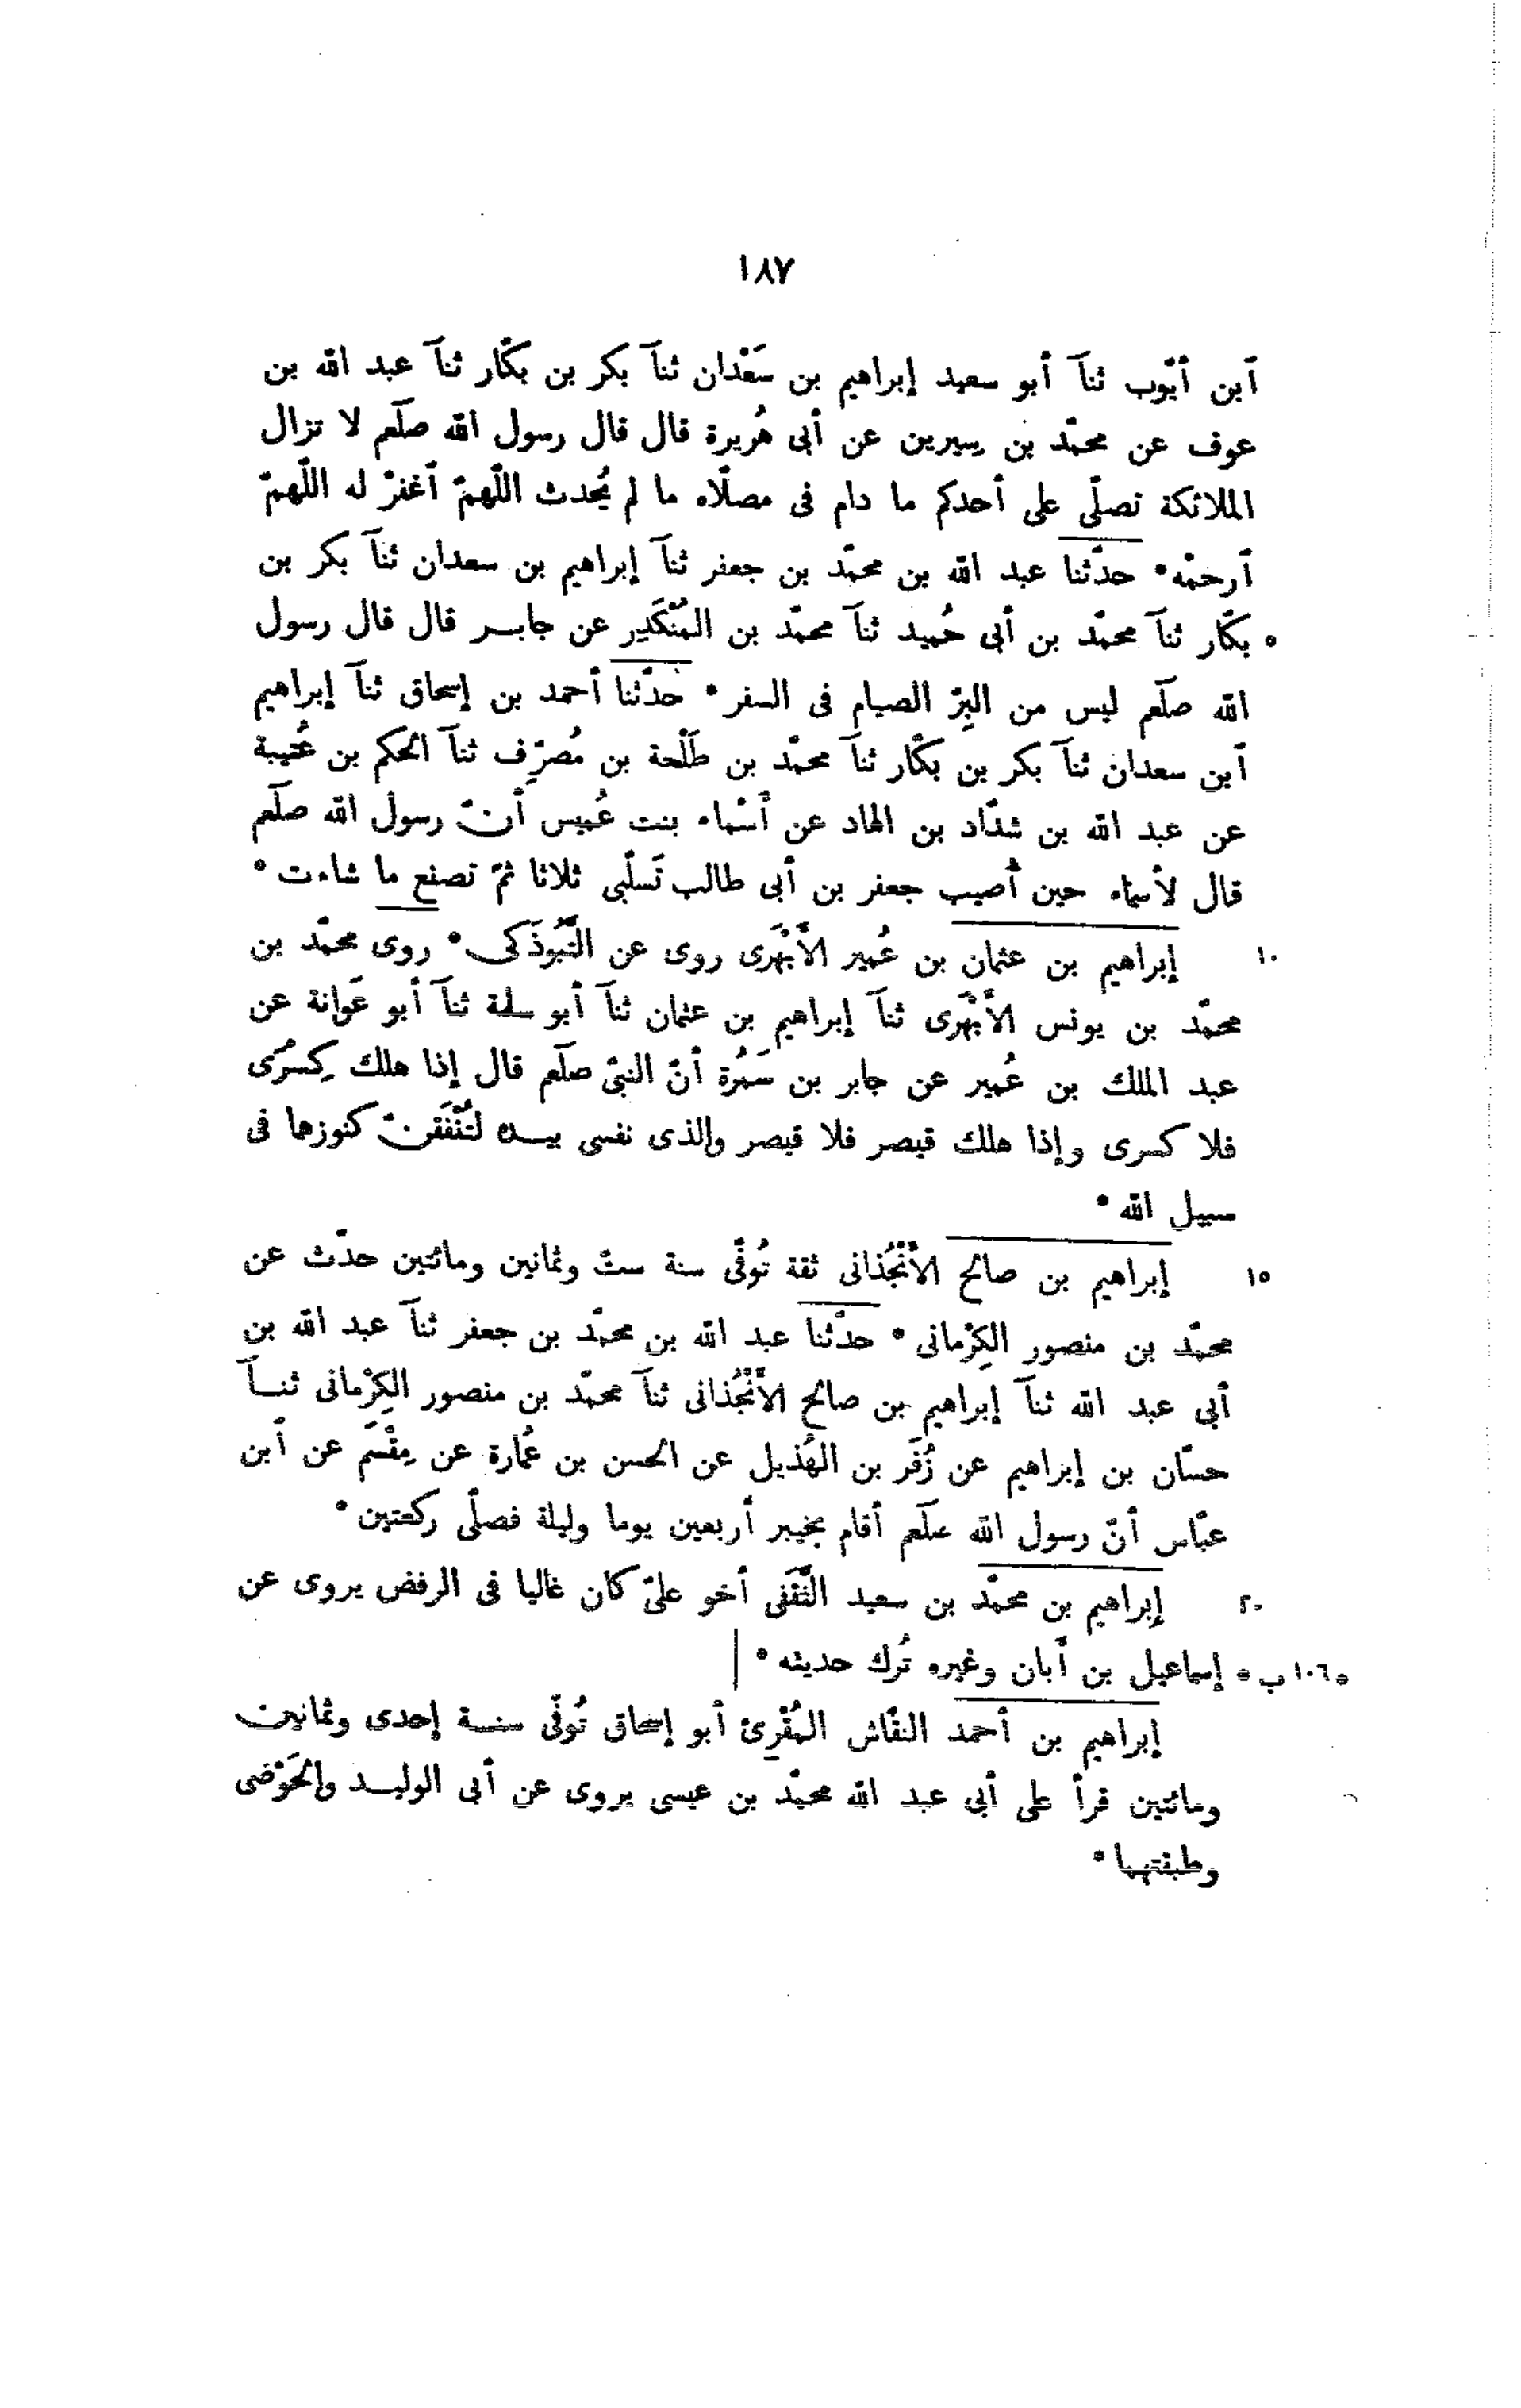 ١٨٧
آبن أيّوب ثنآ أبو سعيد إبراهيم بن سَعْدان ثنآ بكر بن بكّار ثنآ عبد الله بن
عوف عن محمّد بن سيرين عن أبى هُريرة قال قال رسول الله صلّعم لا تزال
الملائكة تصلّى على أحدكم ما دام فى مصلّاه ما لم يُحدث اللّهمّ آغفرْ له اللّهمّ
آرحمْه • حدّثنا عبد الله بن محمّد بن جعفر ثنآ إبراهيم بن سعدان ثنآ بكر بن
٥ بكّار ثنآ محمّد بن أبى حُميد ثنآ محمّد بن المُنْكَدِر عن جابر قال قال رسول
الله صلّعم ليس من البِرّ الصيام فى السفر • حدّثنا أحمد بن إسحاق ثنآ إبراهيم
آبن سعدان ثنآ بكر بن بكّار ثنآ محمّد بن طَلْحة بن مُصرِّف ثنآ الحكم بن عُتيبة
عن عبد الله بن شدّاد بن الهاد عن أَسْماء بنت عُميس أنّ رسول الله صلّعم
قال لأسماء حين أُصيب جعفر بن أبى طالب تَسلّبى ثلاثا ثمّ تصنع ما شاءت •
١٠ إبراهيم بن عثمان بن عُمير الأَبْهَرى روى عن التَّبُوذَكى • روى محمّد بن
محمّد بن يونس الأَبْهَرى ثنآ إبراهيم بن عثمان ثنآ أبو سلمة ثنآ أبو عَوانة عن
عبد الملك بن عُمير عن جابر بن سَمُرة أنّ النبىّ صلّعم قال إذا هلك كِسْرَى
فلا كسرى وإذا هلك قيصر فلا قيصر والذى نفسى بيده لتُنْفَقَنّ كنوزها فى
سبيل الله •
١٥ إبراهيم بن صالح الأَنْجُذانى ثقة تُوفّى سنة ستّ وثمانين ومائتين حدّث عن
محمّد بن منصور الكِرْمانى • حدّثنا عبد الله بن محمّد بن جعفر ثنآ عبد الله بن
أبى عبد الله ثنآ إبراهيم بن صالح الأَنْجُذانى ثنآ محمّد بن منصور الكِرْمانى ثنآ
حسّان بن إبراهيم عن زُفَر بن الهُذيل عن الحسن بن عُمارة عن مِقْسَم عن آبن
عبّاس أنّ رسول الله صلّعم أقام بخيبر أربعين يوما وليلة فصلّى ركعتين •
٢٠ إبراهيم بن محمّد بن سعيد الثَّقَفى أخو علىّ كان غاليا فى الرفض يروى عن
•١٠٦ ب• إسماعيل بن أَبان وغيره تُرك حديثه • |
إبراهيم بن أحمد النقّاش المُقْرِئ أبو إسحاق تُوفّى سنة إحدى وثمانين
ومائتين قرأ على أبى عبد الله محمّد بن عيسى يروى عن أبى الوليد والحَوْضى
وطبقتهما •